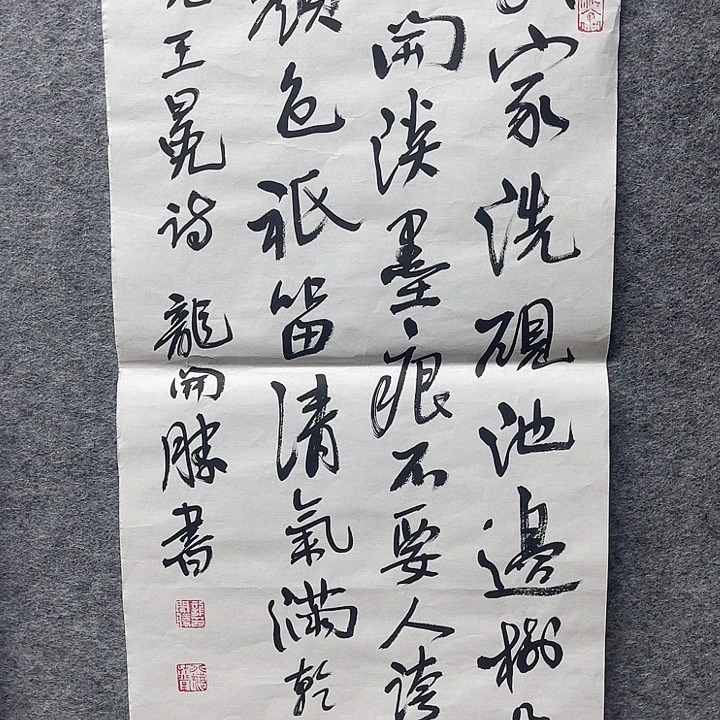 家洗硯池邊樹
開淡墨痕不要人誇
顏色祇留清氣滿乾
王冕詩 龍開勝書